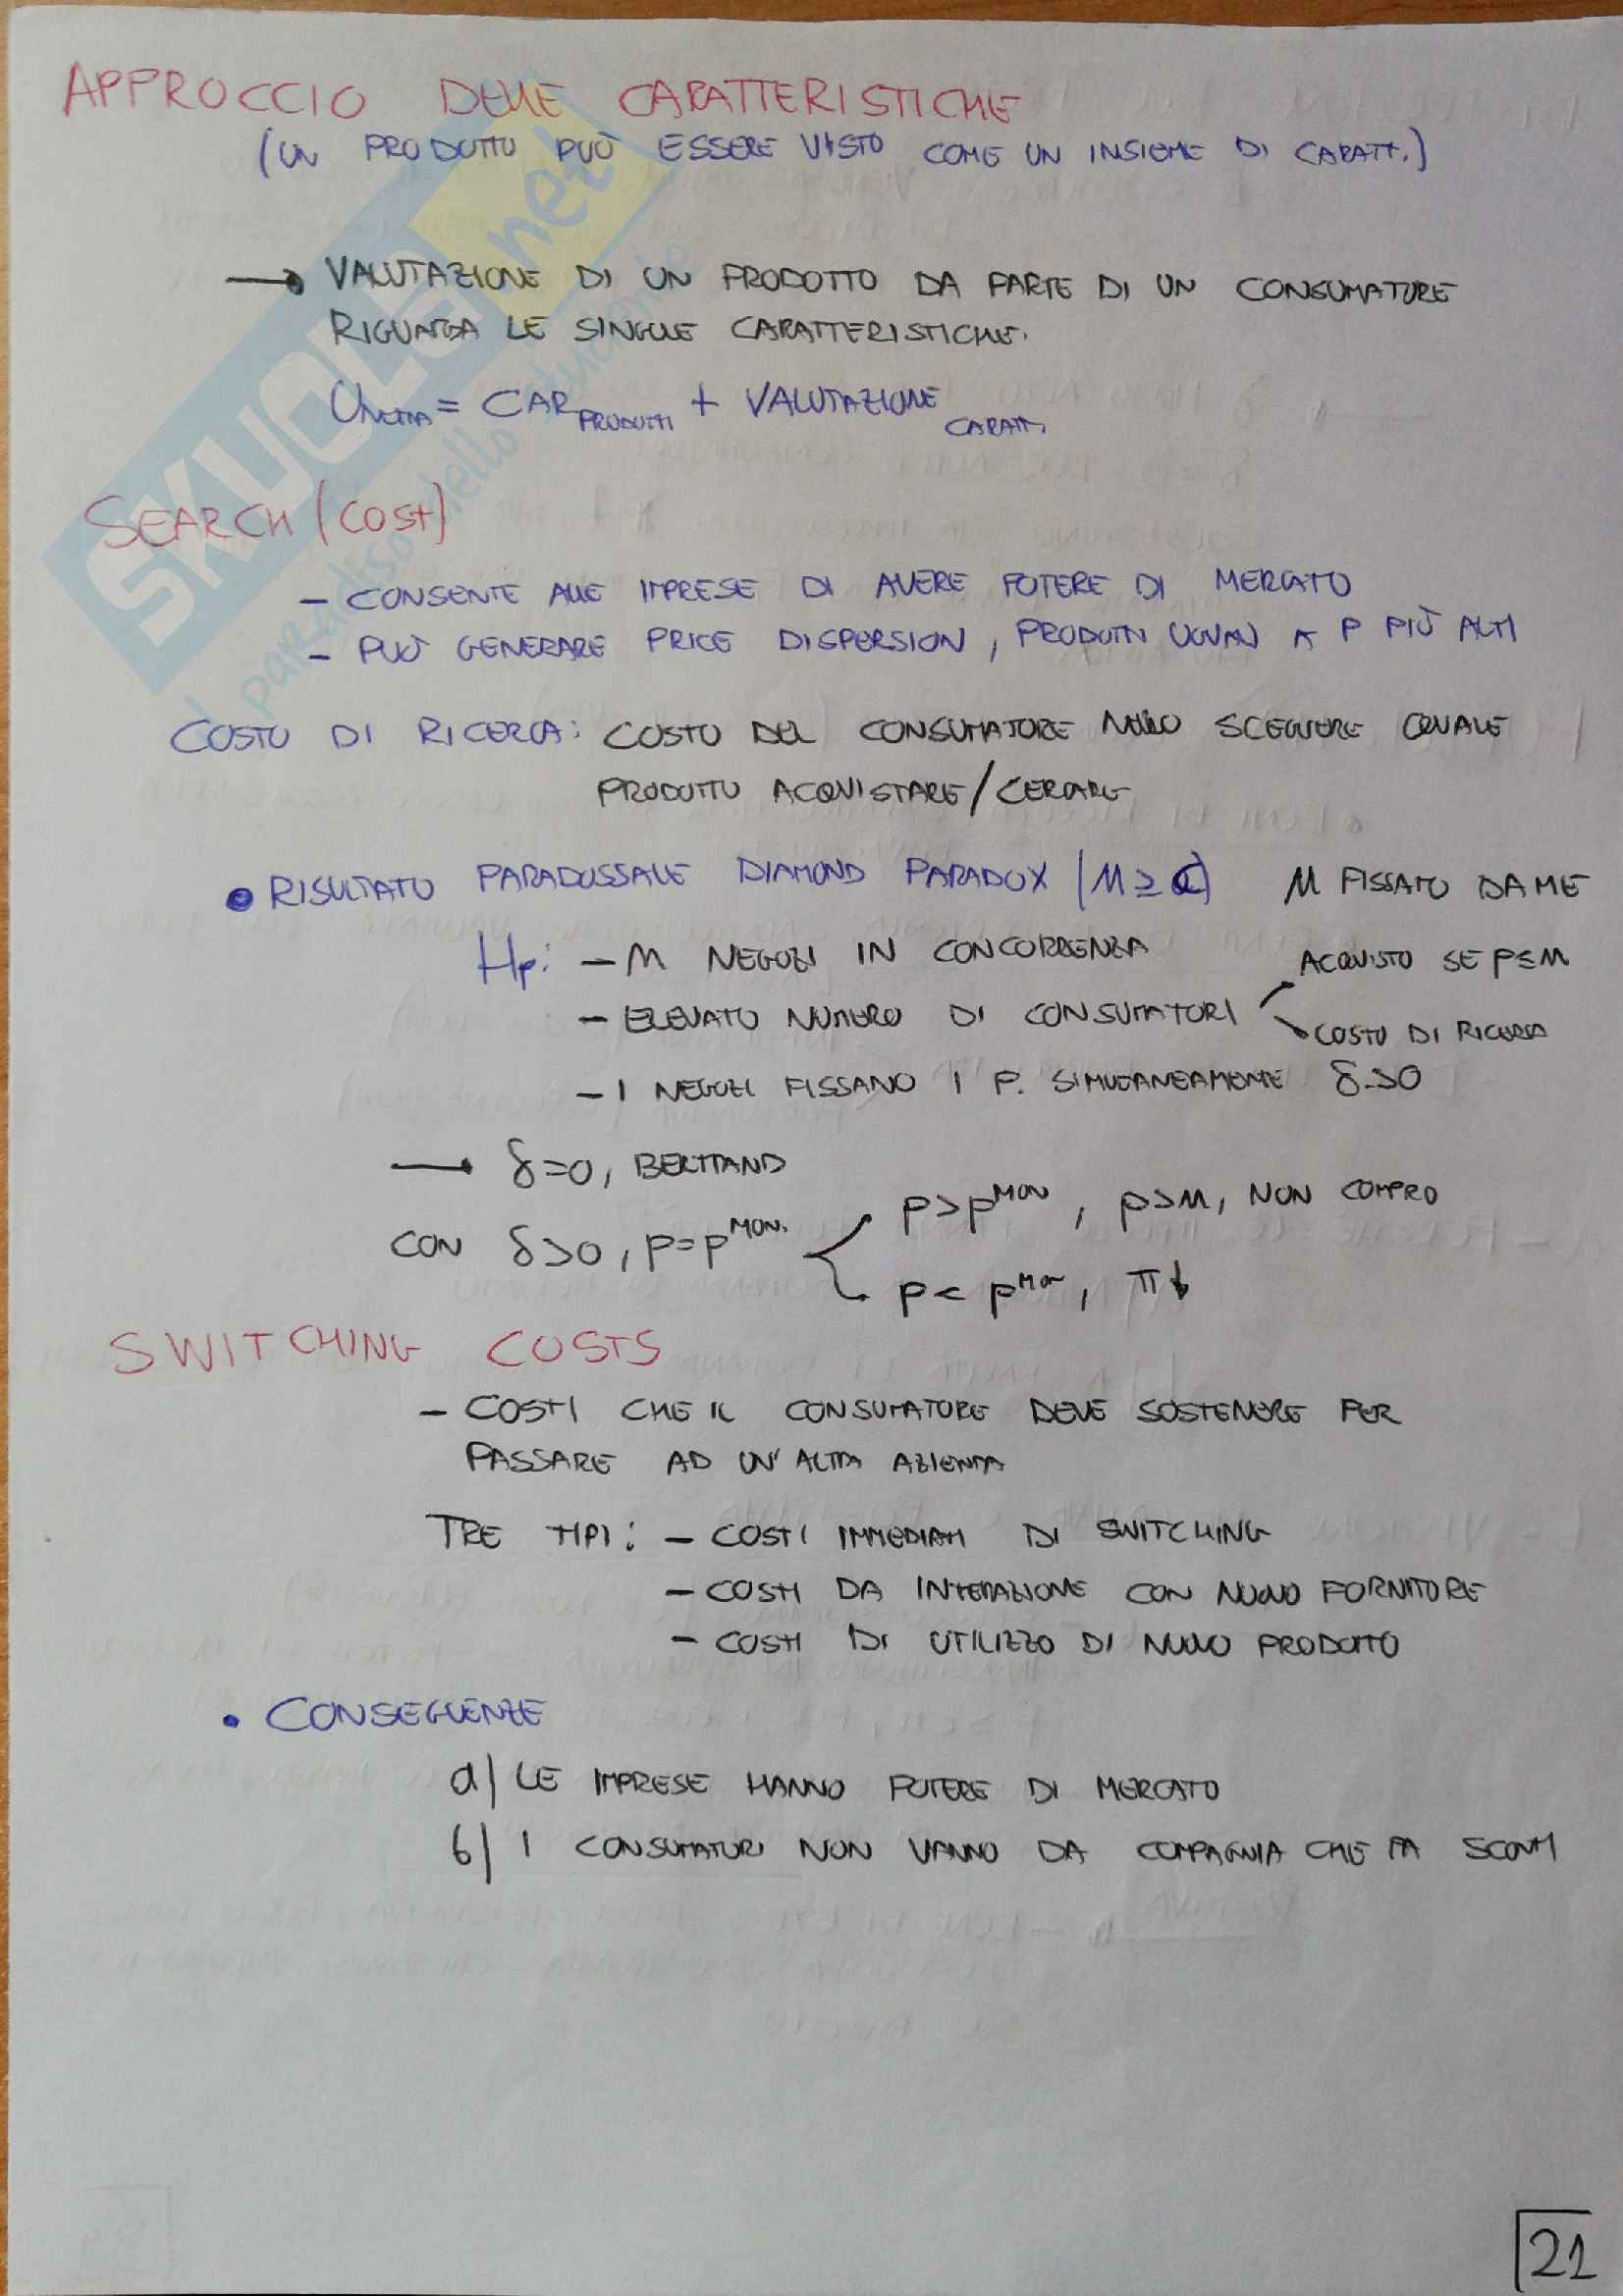 APPROCCIO DELLE CARATTERISTICHE
(UN PRODOTTO PUÒ ESSERE VISTO COME UN INSIEME DI CARATT.)
→ VALUTAZIONE DI UN PRODOTTO DA PARTE DI UN CONSUMATORE
RIGUARDA LE SINGOLE CARATTERISTICHE.
U NETTA = CAR PRODOTTI + VALUTAZIONE CARATT.
SEARCH (COST)
- CONSENTE ALLE IMPRESE DI AVERE POTERE DI MERCATO
- PUÒ GENERARE PRICE DISPERSION, PRODOTTI UGUALI A P PIÙ ALTI
COSTO DI RICERCA: COSTO DEL CONSUMATORE NELLO SCEGLIERE QUALE
PRODOTTO ACQUISTARE/CERCARE
• RISULTATO PARADOSSALE DIAMOND PARADOX (M ≥ C) M FISSATO DA ME
Hp: - M NEGOZI IN CONCORRENZA
- ELEVATO NUMERO DI CONSUMATORI
ACQUISTO SE P≤M
COSTO DI RICERCA
- I NEGOZI FISSANO I P. SIMULTANEAMENTE δ>0
→ δ=0, BERTRAND
CON δ>0, P=P^MON.
P>P^MON, P>M, NON COMPRO
P<P^MON, π↓
SWITCHING COSTS
- COSTI CHE IL CONSUMATORE DEVE SOSTENERE PER
PASSARE AD UN'ALTRA AZIENDA
TRE TIPI: - COSTI IMMEDIATI DI SWITCHING
- COSTI DA INTERAZIONE CON NUOVO FORNITORE
- COSTI DI UTILIZZO DI NUOVO PRODOTTO
• CONSEGUENZE
a) LE IMPRESE HANNO POTERE DI MERCATO
b) I CONSUMATORI NON VANNO DA COMPAGNIA CHE FA SCONTI
21
SKUOLA.net
il paradiso dello studente